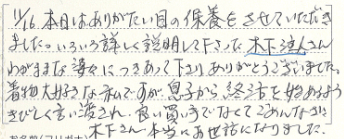 11/16. 本日はありがたい目の保養をさせていただき
ましたっいろいろ詳しく説明して下さって木下達人さん
わがままな婆々につきあって下さりありがとうございました。
着物大好きな私ですが、息子から終活を始めるよう
きびしく言い渡され、良い買い手でなくてごめんなさい
木下さん本当にお世話になりました。